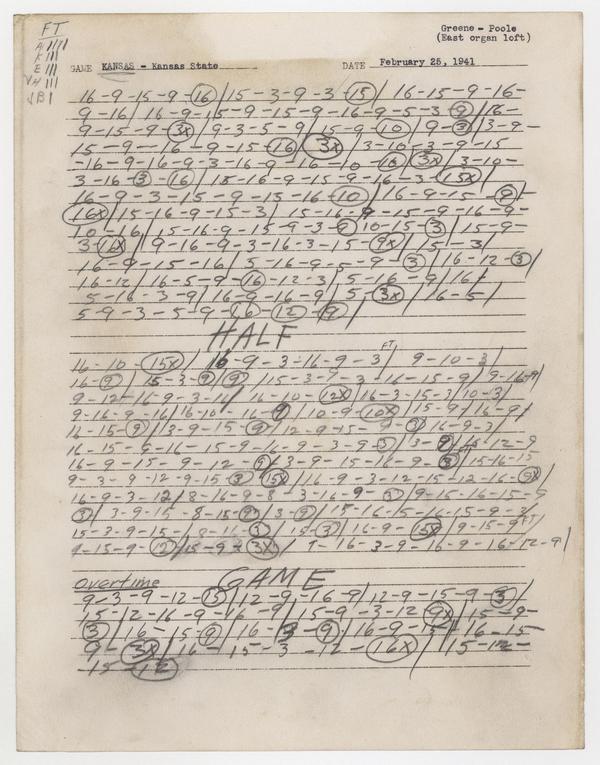 FT
A IIII
K III
E III
H III
B I
Greene - Poole
(East organ loft)
GAME KANSAS - Kansas State DATE February 25, 1941
16-9-15-9-16/15-3-9-3-15/ 16-15-9-16-
9-16/ 16-9-15-9-15-9-16-9-5-3-9/16-
9-15-9-3X/9-3-5-9/15-9-10/9-3/3-9-
15-9-16-9-15-16/3X/3-10-3-9-15
-16-9-16-9-3-16-9-16-10-16/3X/3-10-
3-16-3-16/15-16-9-15-9-16-3-15X/
16-9-3-15-9-15-16-10/ 16-9-15-9/
16X/15-16-9-15-3/ 15-16-9-15-9-16-9-
10-16/15-16-9-15-9-3-9/10-15-3/15-9-
3-16X/ 9-16-9-3-16-3-15-9X/15-3/
16-9-15-16/5-16-9-5-9-3/16-12-3/
16-12/16-5-9-16-12-3/5-16-9/16/
5-16-3-9/16-9-16-9/5-3X/16-5/
5-9-3-5-9-16-12-9/
HALF
16-10-15X/ 16-9-3-16-9-3/ FT 9-10-3/
16-9/15-3-9/9/15-3-9-3-16-15-9/9-16-9/
9-12-16-9-3-16/ 16-10-12X/16-3-15-3/10-3/
9-16-9-16/16-10-16-9/10-9-10X/15-9/16-9/
16-15-9/3-9-15-9/12-9-15-9-3/16-9-3/
16-15-9-16-15-9-16-9-3-9-3/3-9/15-12-9
16-9-15-9-12-9/3-9-15-16-9-3/15-16-15
9-3-9-12-9-15-3/15X/16-9-3-12-15-12-16-9X/
16-9-3-12/8-16-9-8-3-16-9-3/9-15-16-15-9
3/3-9-15-8-15-9/3-9/15-16-5-16-15-9-3/
15-3-9-15/ 3/15-3/16-9-15X/9-15-9 FT/
9-15-9-12/15-9-3X/ 9-16-3-9-16-9-16-12-9/
Overtime GAME
9-3-9-12-15/12-9-16-9/12-9-15-9-3/
15-12-16-9-16-9/15-9-3-12-9X/15-9-
3/16-15-9/16-3-9/16-9-15/16-15-
9-3X/16-15-3-12-16X/ 15-12-
15-12